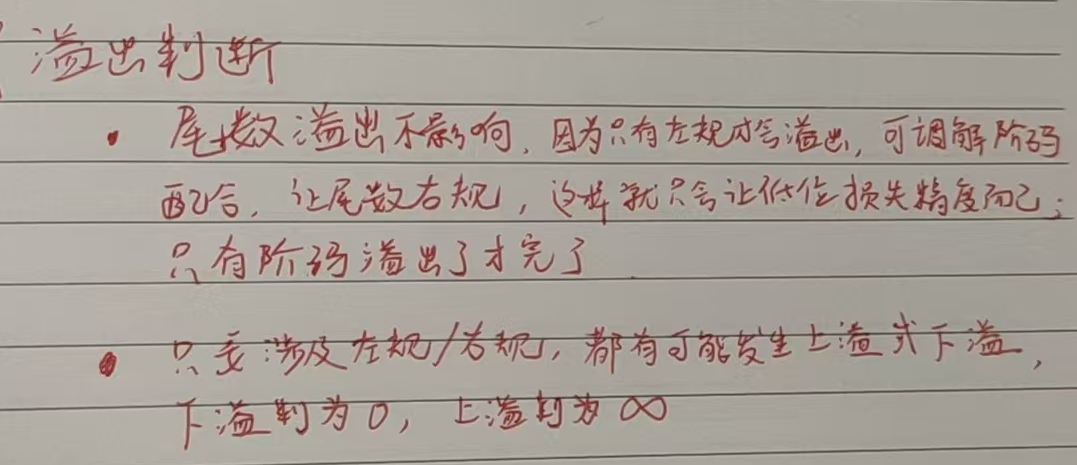 溢出判断
· 尾数溢出不影响，因为只有左规才会溢出，可调解阶码
配合，让尾数右规，这样就只会让低位损失精度而已；
只有阶码溢出了才完了
· 只要涉及左规/右规，都有可能发生上溢或下溢，
下溢判为0，上溢判为∞